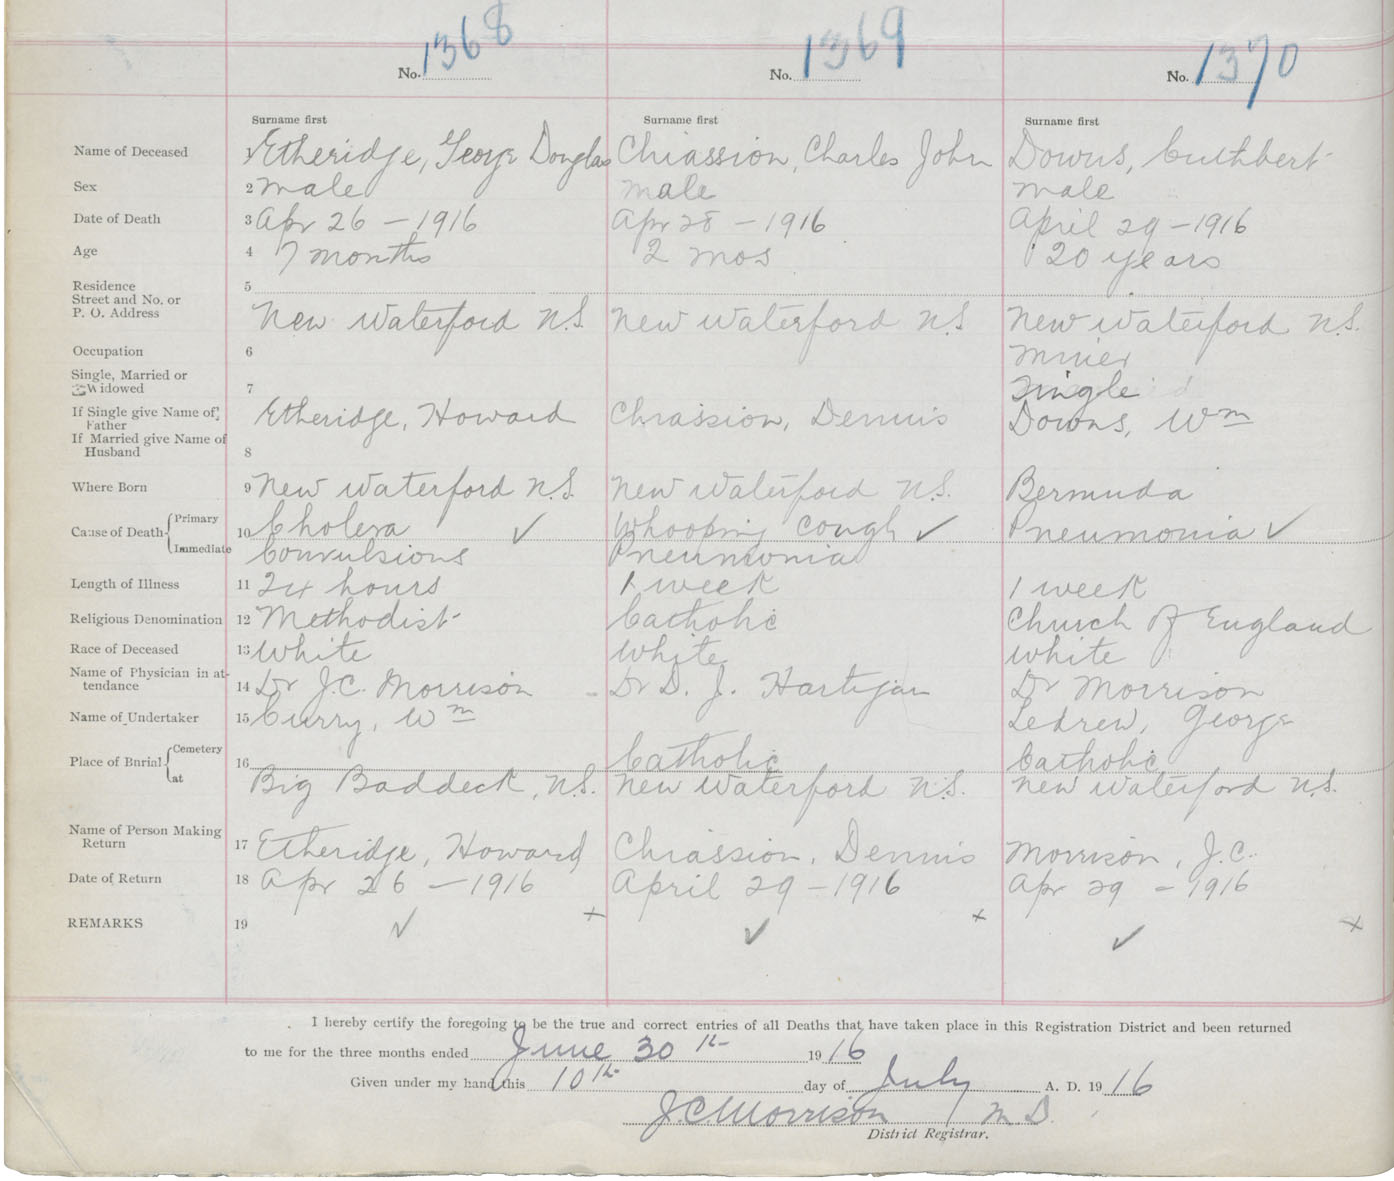 No. 1368 No. 1369 No. 1370
Surname first Surname first Surname first
Name of Deceased 1 Etheridge, George Douglas Chiassion, Charles John Downs, Cuthbert
Sex 2 male male male
Date of Death 3 Apr 26 – 1916 Apr 28 – 1916 April 29 – 1916
Age 4 7 months 2 mos 20 years
Residence 5
Street and No. or
P. O. Address New Waterford N.S. New Waterford N.S New Waterford N.S.
Occupation 6 Miner
Single, Married or
Widowed 7 Single
If Single give Name of Etheridge, Howard Chiassion, Dennis Downs, Wm
Father
If Married give Name of
Husband 8
Where Born 9 New Waterford N.S. New Waterford N.S. Bermuda
Cause of Death { Primary 10 Cholera ✓ Whooping Cough ✓ Pneumonia ✓
Immediate Convulsions Pneumonia
Length of Illness 11 24 hours 1 week 1 week
Religious Denomination 12 Methodist Catholic Church of England
Race of Deceased 13 White White White
Name of Physician in at-
tendance 14 Dr J.C. Morrison Dr D. J. Hartigan Dr Morrison
Name of Undertaker 15 Curry, Wm Ledrew, George
Place of Burial { Cemetery 16 Catholic Catholic
at Big Baddeck, N.S. New Waterford N.S. New Waterford N.S.
Name of Person Making
Return 17 Etheridge, Howard Chiassion, Dennis Morrison, J.C.
Date of Return 18 Apr 26 – 1916 April 29 – 1916 Apr 29 – 1916
REMARKS 19 ✓ + ✓ x ✓ x
I hereby certify the foregoing to be the true and correct entries of all Deaths that have taken place in this Registration District and been returned
to me for the three months ended June 30th 1916
Given under my hand this 10th day of July A. D. 1916
J.C. Morrison M.D.
District Registrar.